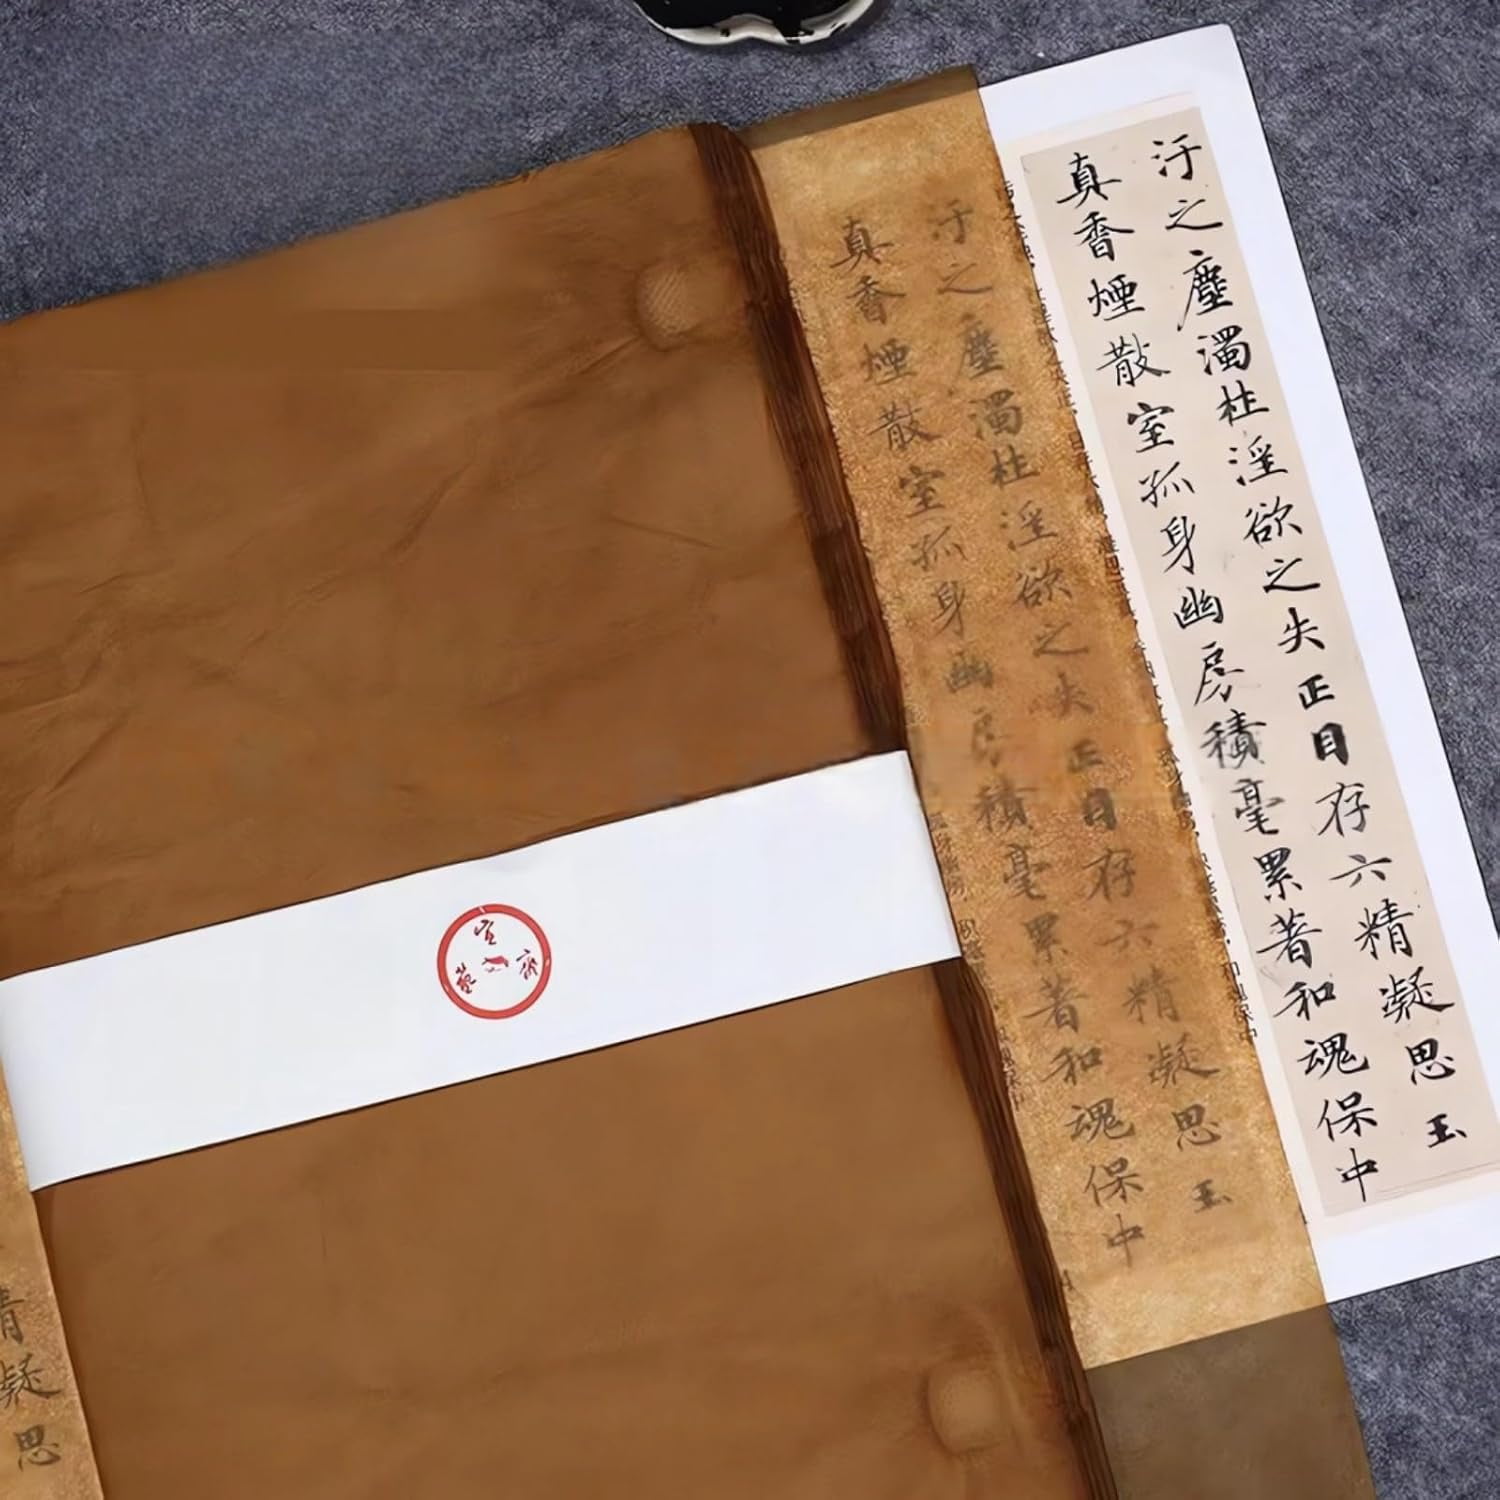 汙之塵濁杜淫欲之失正目存六精凝思玉
真香煙散室孤身幽房積毫累著和魂保中
汙之塵濁杜淫欲之失正目存六精凝思玉
真香煙散室孤身幽房積毫累著和魂保中
凝思